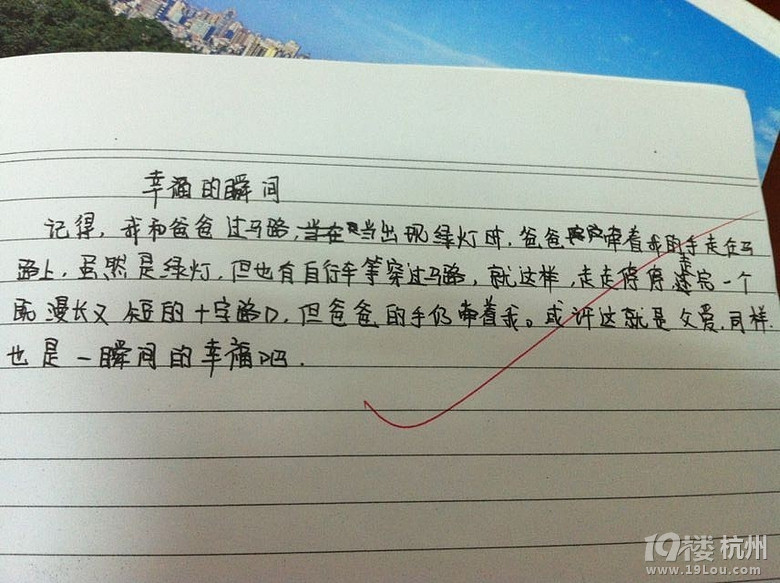 幸福的瞬间
记得，我和爸爸过马路，当出现绿灯时，爸爸牵着我的手走在马
路上，虽然是绿灯，但也有自行车等穿过马路，就这样，走走停停，走完一个
既漫长又短的十字路口，但爸爸的手仍牵着我。或许这就是父爱，同样
也是一瞬间的幸福吧．
19楼杭州
www.19Lou.com